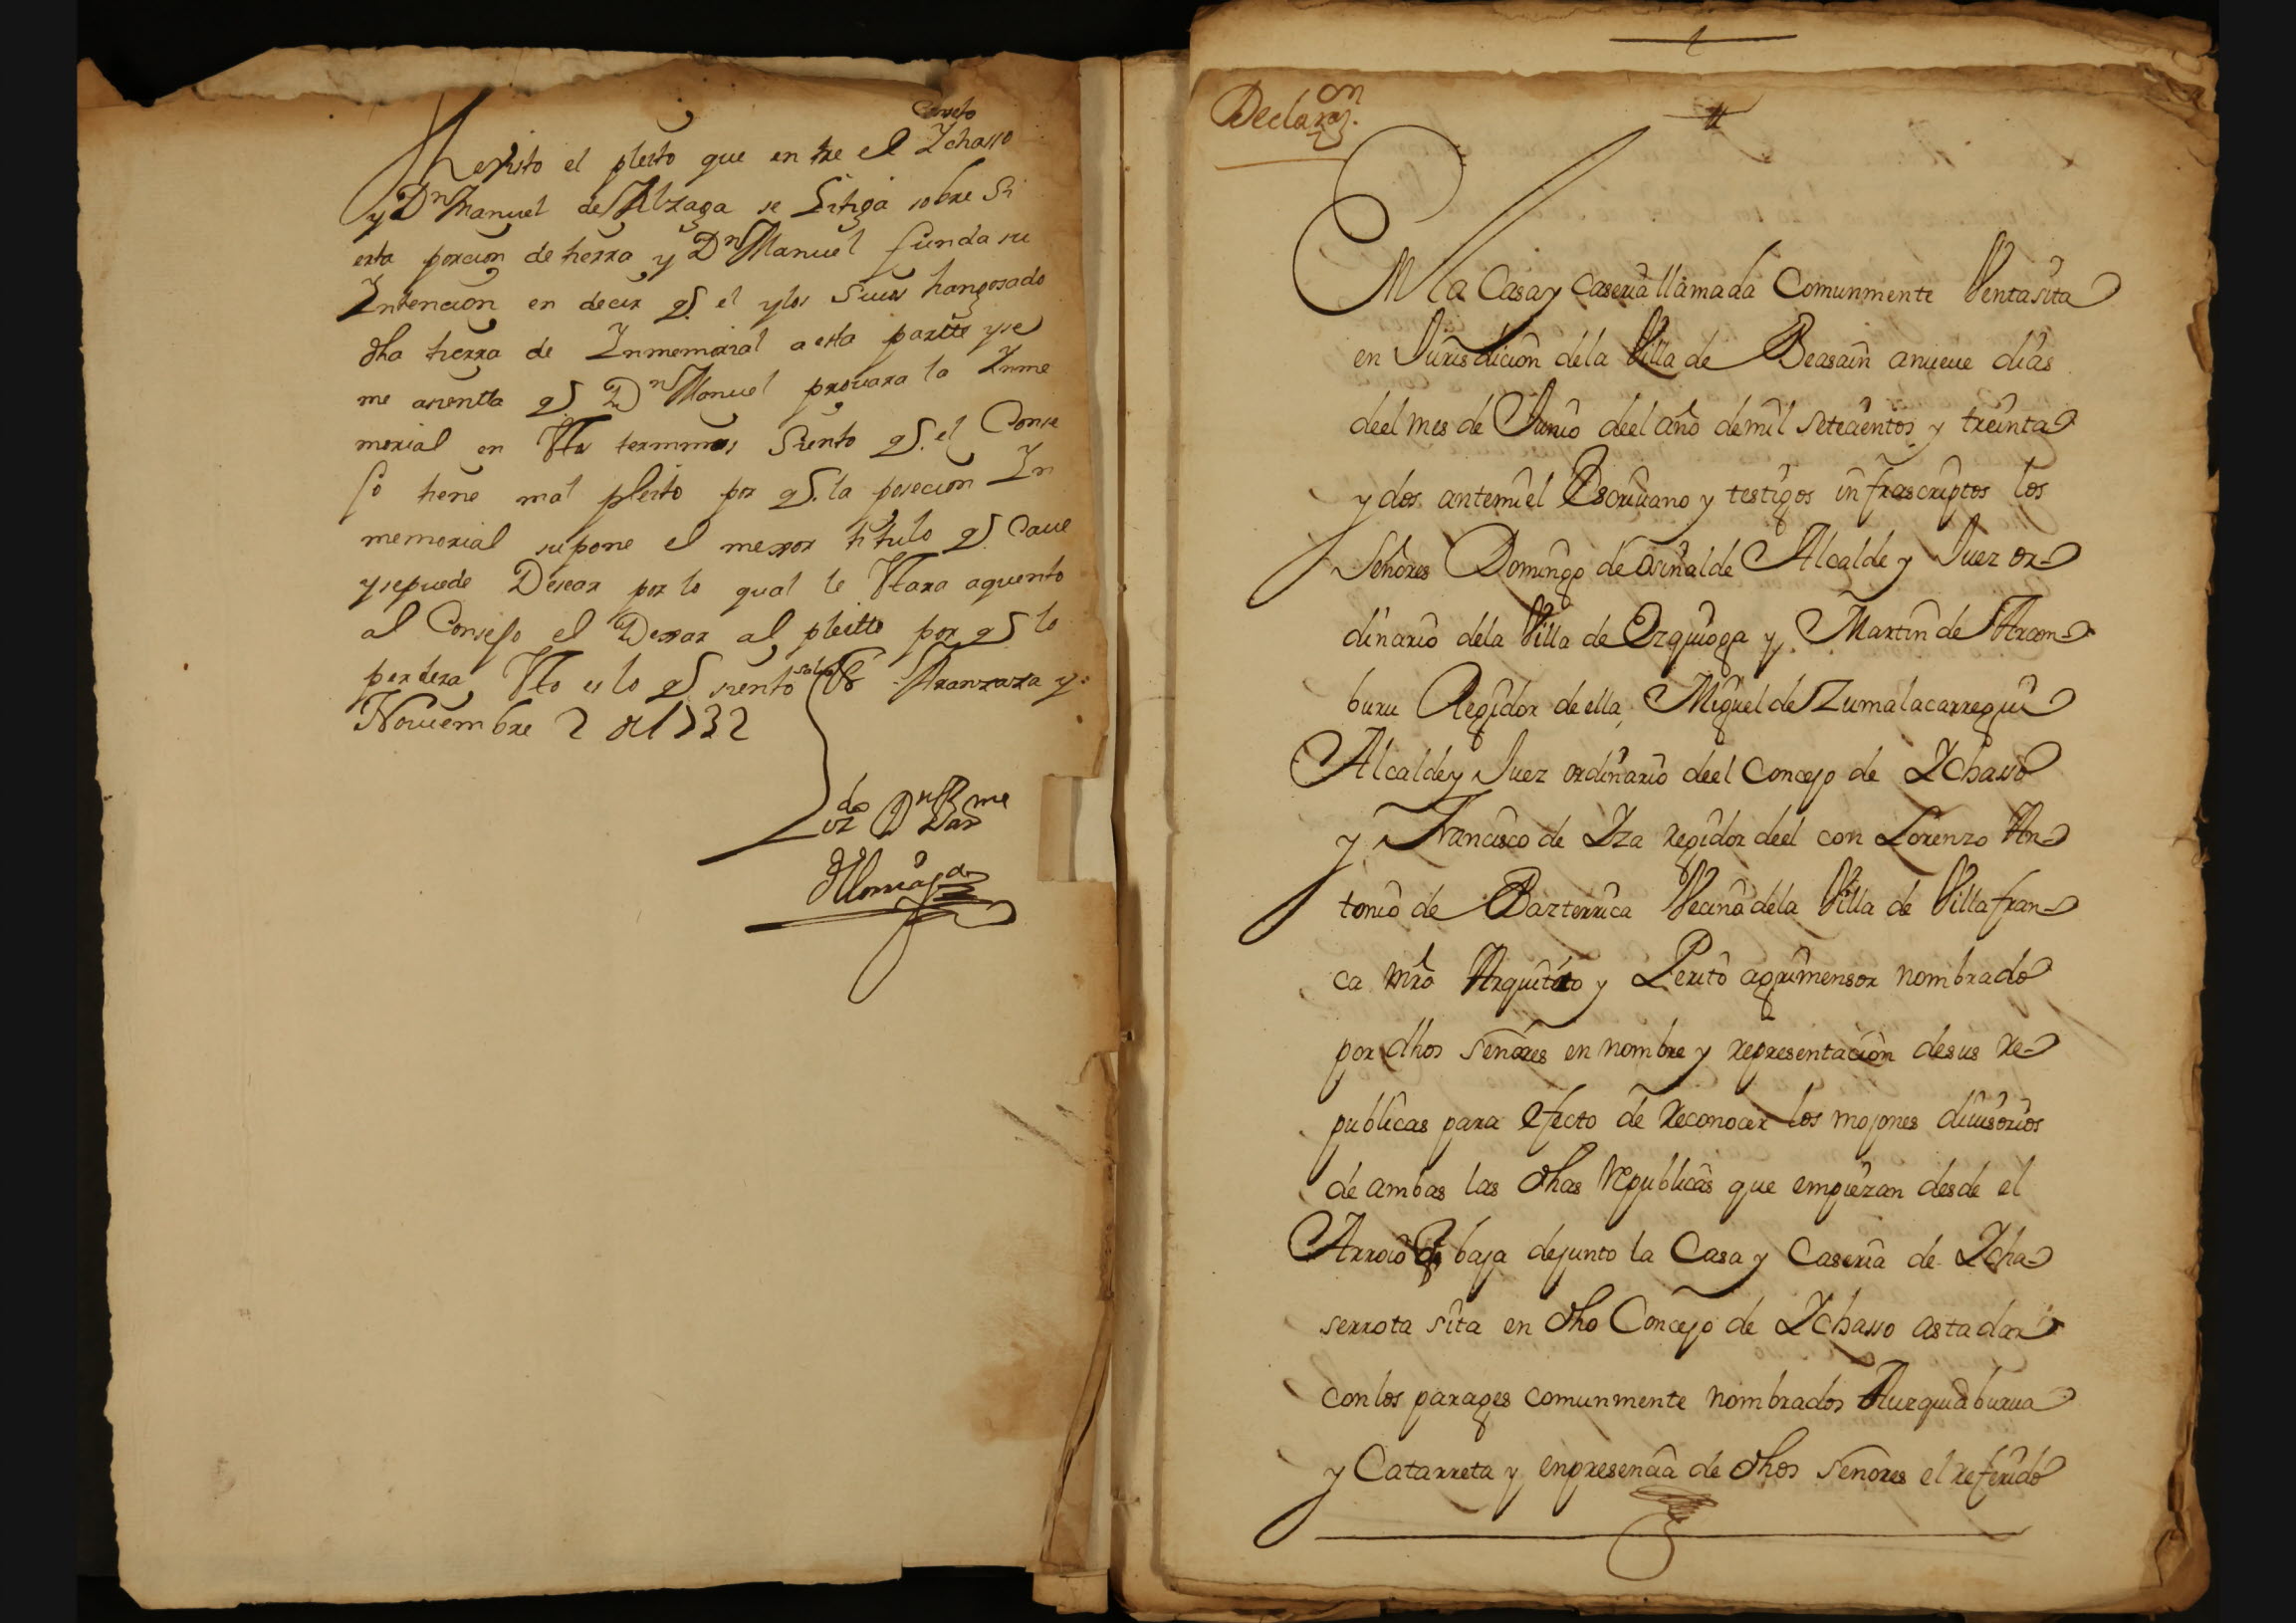 Conzejo
He visto el pleito que entre el Ychasso
y Dn Manuel de Alzaga se Litiga sobre Si
erta porcion de tierra y Dn Manuel funda su
Intencion en decir q. el y los Suios han gosado
dha tierra de Inmemorial a esta partte y se
me asientta q. Dn Manuel provara la Inme
morial en terminos Siento q. el Conse
jo tiene mal pleito por q. la posecion In
memorial supone el mexor titulo q. Cave
y se puede Desear por lo qual le aquento
al Consejo el Dexar al pleitto por q. lo
perdera es lo q. siento Salvo Aranzazu y
Noviembre 2 de 1732
Ldo Dn
Declaraon.
1
En la Casa y caseria llamada Comunmente Venta sita
en Jurisdicion de la Villa de Beasain a nueve dias
de el mes de Junio de el año de mil setecientos y treinta
y dos ante mi el Escrivano y testigos infrascriptos los
Señores Domingo de Osinalde Alcalde y Juez or-
dinario de la Villa de Ezquioga y Martin de Aram-
buru Regidor de ella, Miguel de Zumalacarregui
Alcalde y Juez ordinario de el Concejo de Ychasso
y Francisco de Yza regidor de el con Lorenzo An-
tonio de Bazterrica Vecino de la Villa de Villafran-
ca mro Arquitecto y Perito agrimensor nombrado
por dhos Señores en nombre y representacion de sus Re-
publicas para efecto de reconocer los mojones divisorios
de ambas las dhas republicas que empiezan desde el
Arroio q baja de junto la Casa y Caseria de Ycha-
serrota sita en dho Concejo de Ychasso asta dar
con los parages comunmente nombrados Aurquiaburua
y Catarreta y en presencia de dhos Señores el referido